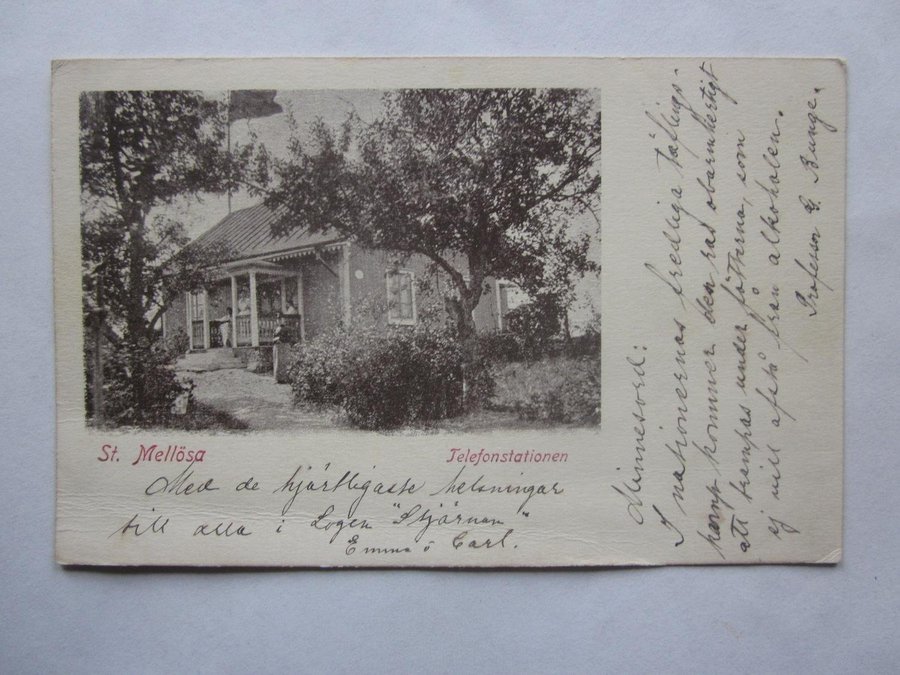 St. Mellösa
Telefonstationen
Med de hjärtligaste helsningar
till alla i Logen "Stjärnan"
Emma o Carl.
Minnesord:
I nationernas fredliga täflings-
kamp kommer den rad obarmhertigt
att trampas under fötterna, som
ej vill afstå från alkoholen.
Professor G. Bunge.